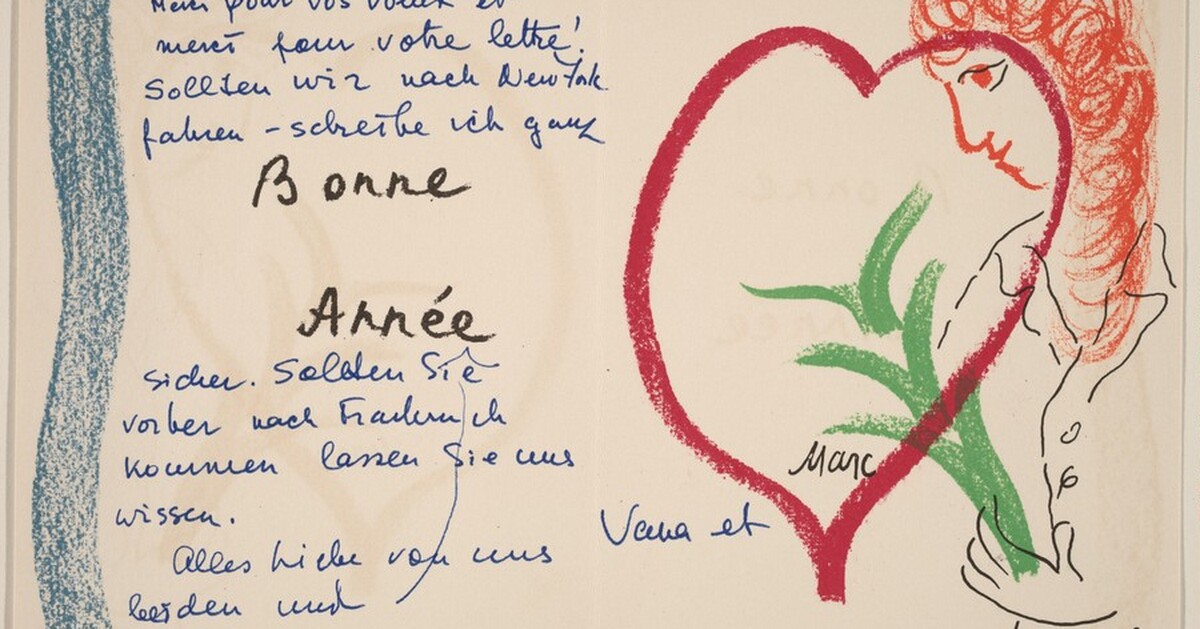 Merci pour vos voeux et
merci pour votre lettre!
Sollten wir nach New York
fahren - schreibe ich ganz
Bonne
Année
sicher. Sollten Sie
vorher nach Frankreich
kommen lassen Sie uns
wissen.
Alles Liebe von uns
beiden und
Vava et
Marc